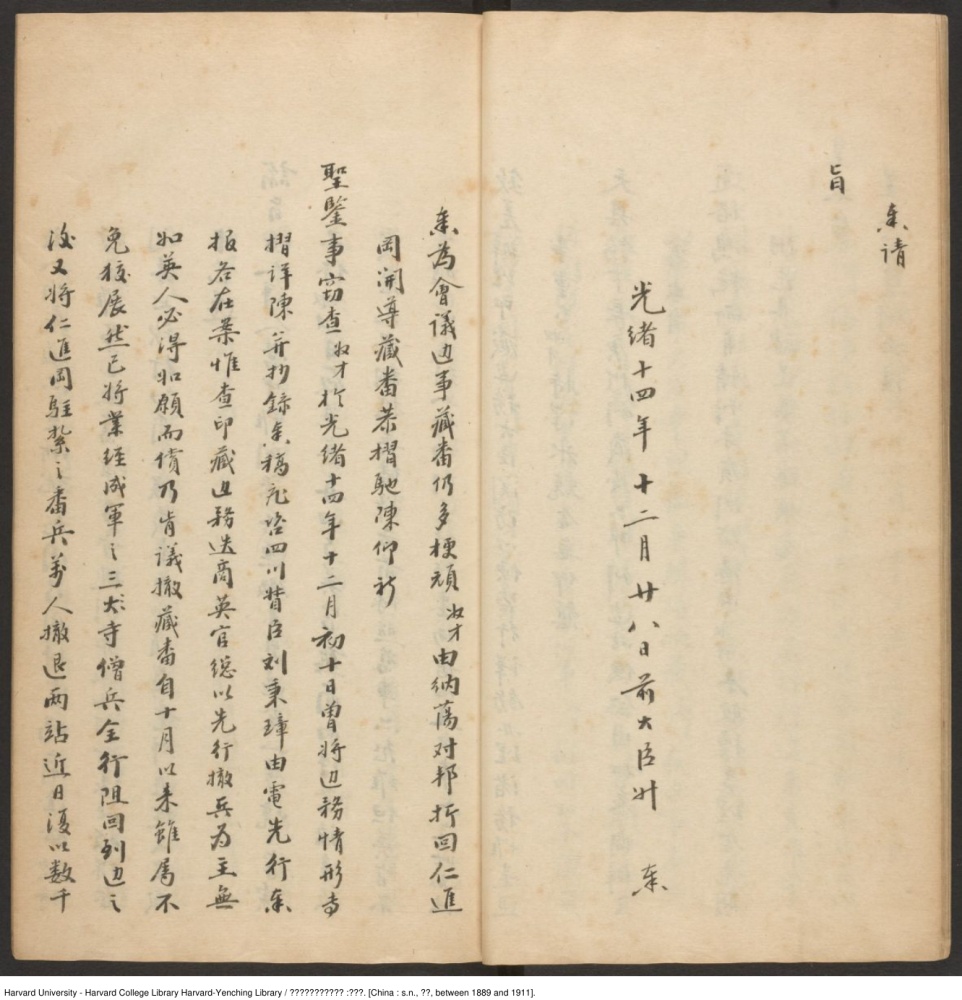 奏请
旨
光绪十四年十二月廿八日前大臣升 奏
奏为會議边事藏番仍多梗顽奴才由纳荡对邦折回仁進
岡開導藏番恭摺馳陳仰祈
聖鑒事窃查奴才於光绪十四年十二月初十日曾将边務情形专
摺详陳并抄錄奏稿飛咨四川督臣刘秉璋由電先行奏
报各在案惟查印藏边務迭商英官總以先行撤兵为主無
如英人必得如願而償乃肯議撤藏番自十月以来雖属不
免狡展然已将業经成軍之三大寺僧兵全行阻回到边之
後又将仁進岡駐紮之番兵萬人撤退两站近日復以数千
Harvard University - Harvard College Library Harvard-Yenching Library / ??????????? :???. [China : s.n., ??, between 1889 and 1911].